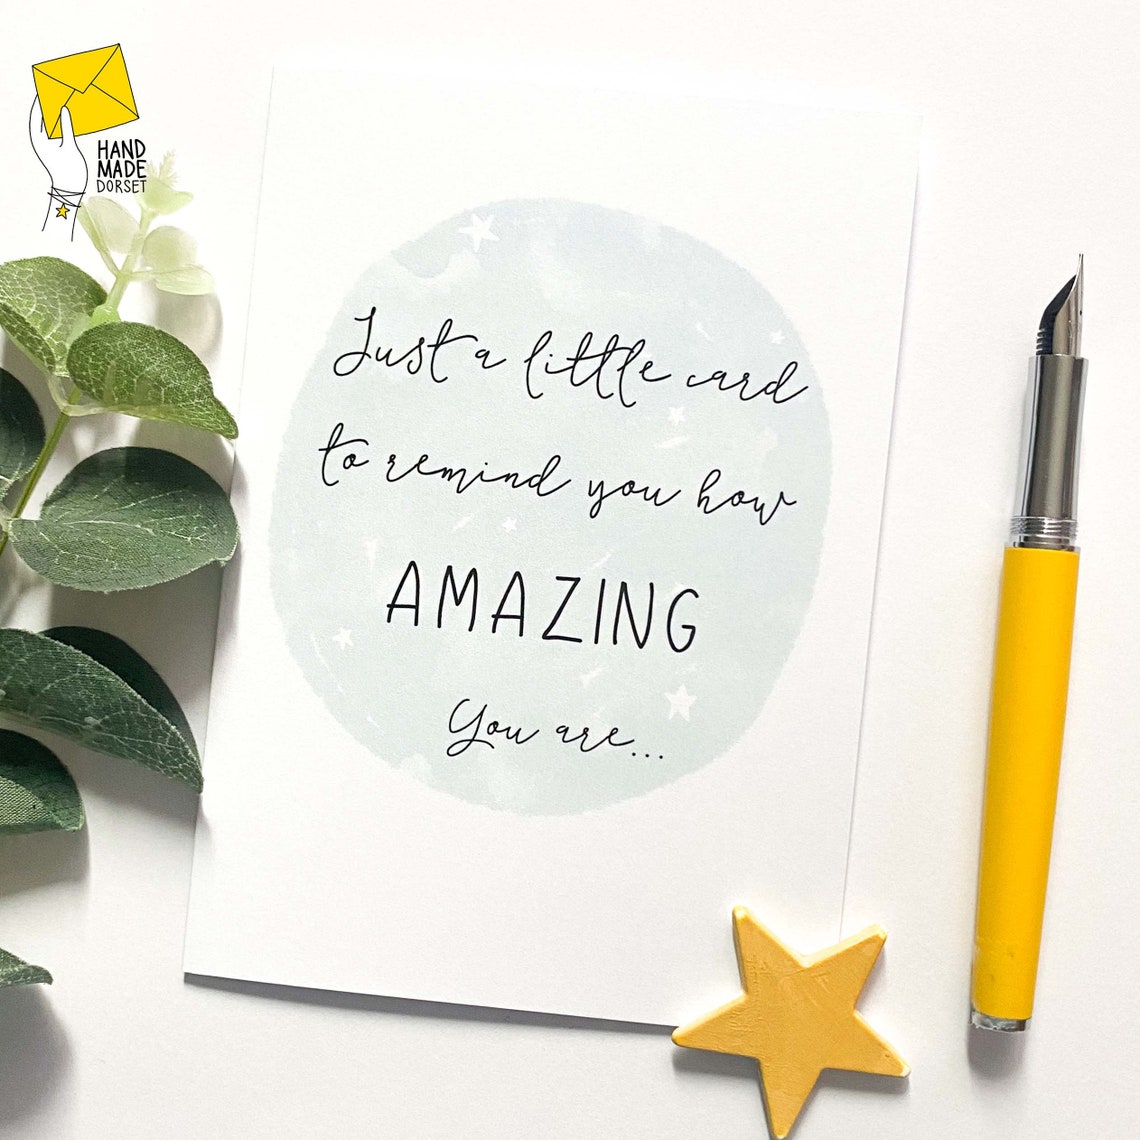 HAND
MADE
DORSET
Just a little card
to remind you how
AMAZING
You are...